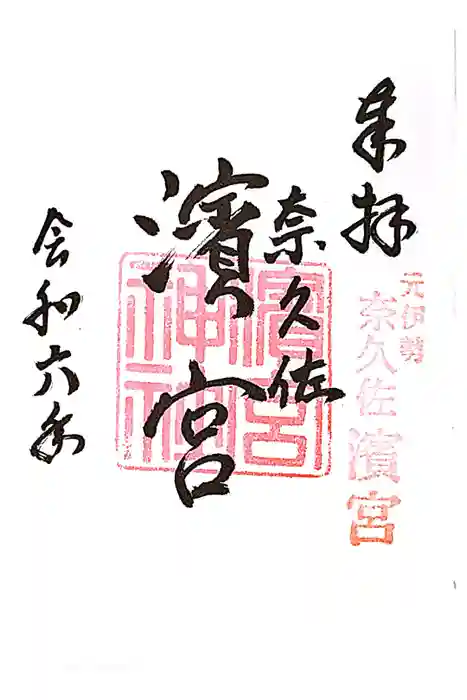 奉拝
元伊勢
奈久佐
濱宮
奈久佐
濱宮
濱宮
神社
令和六年